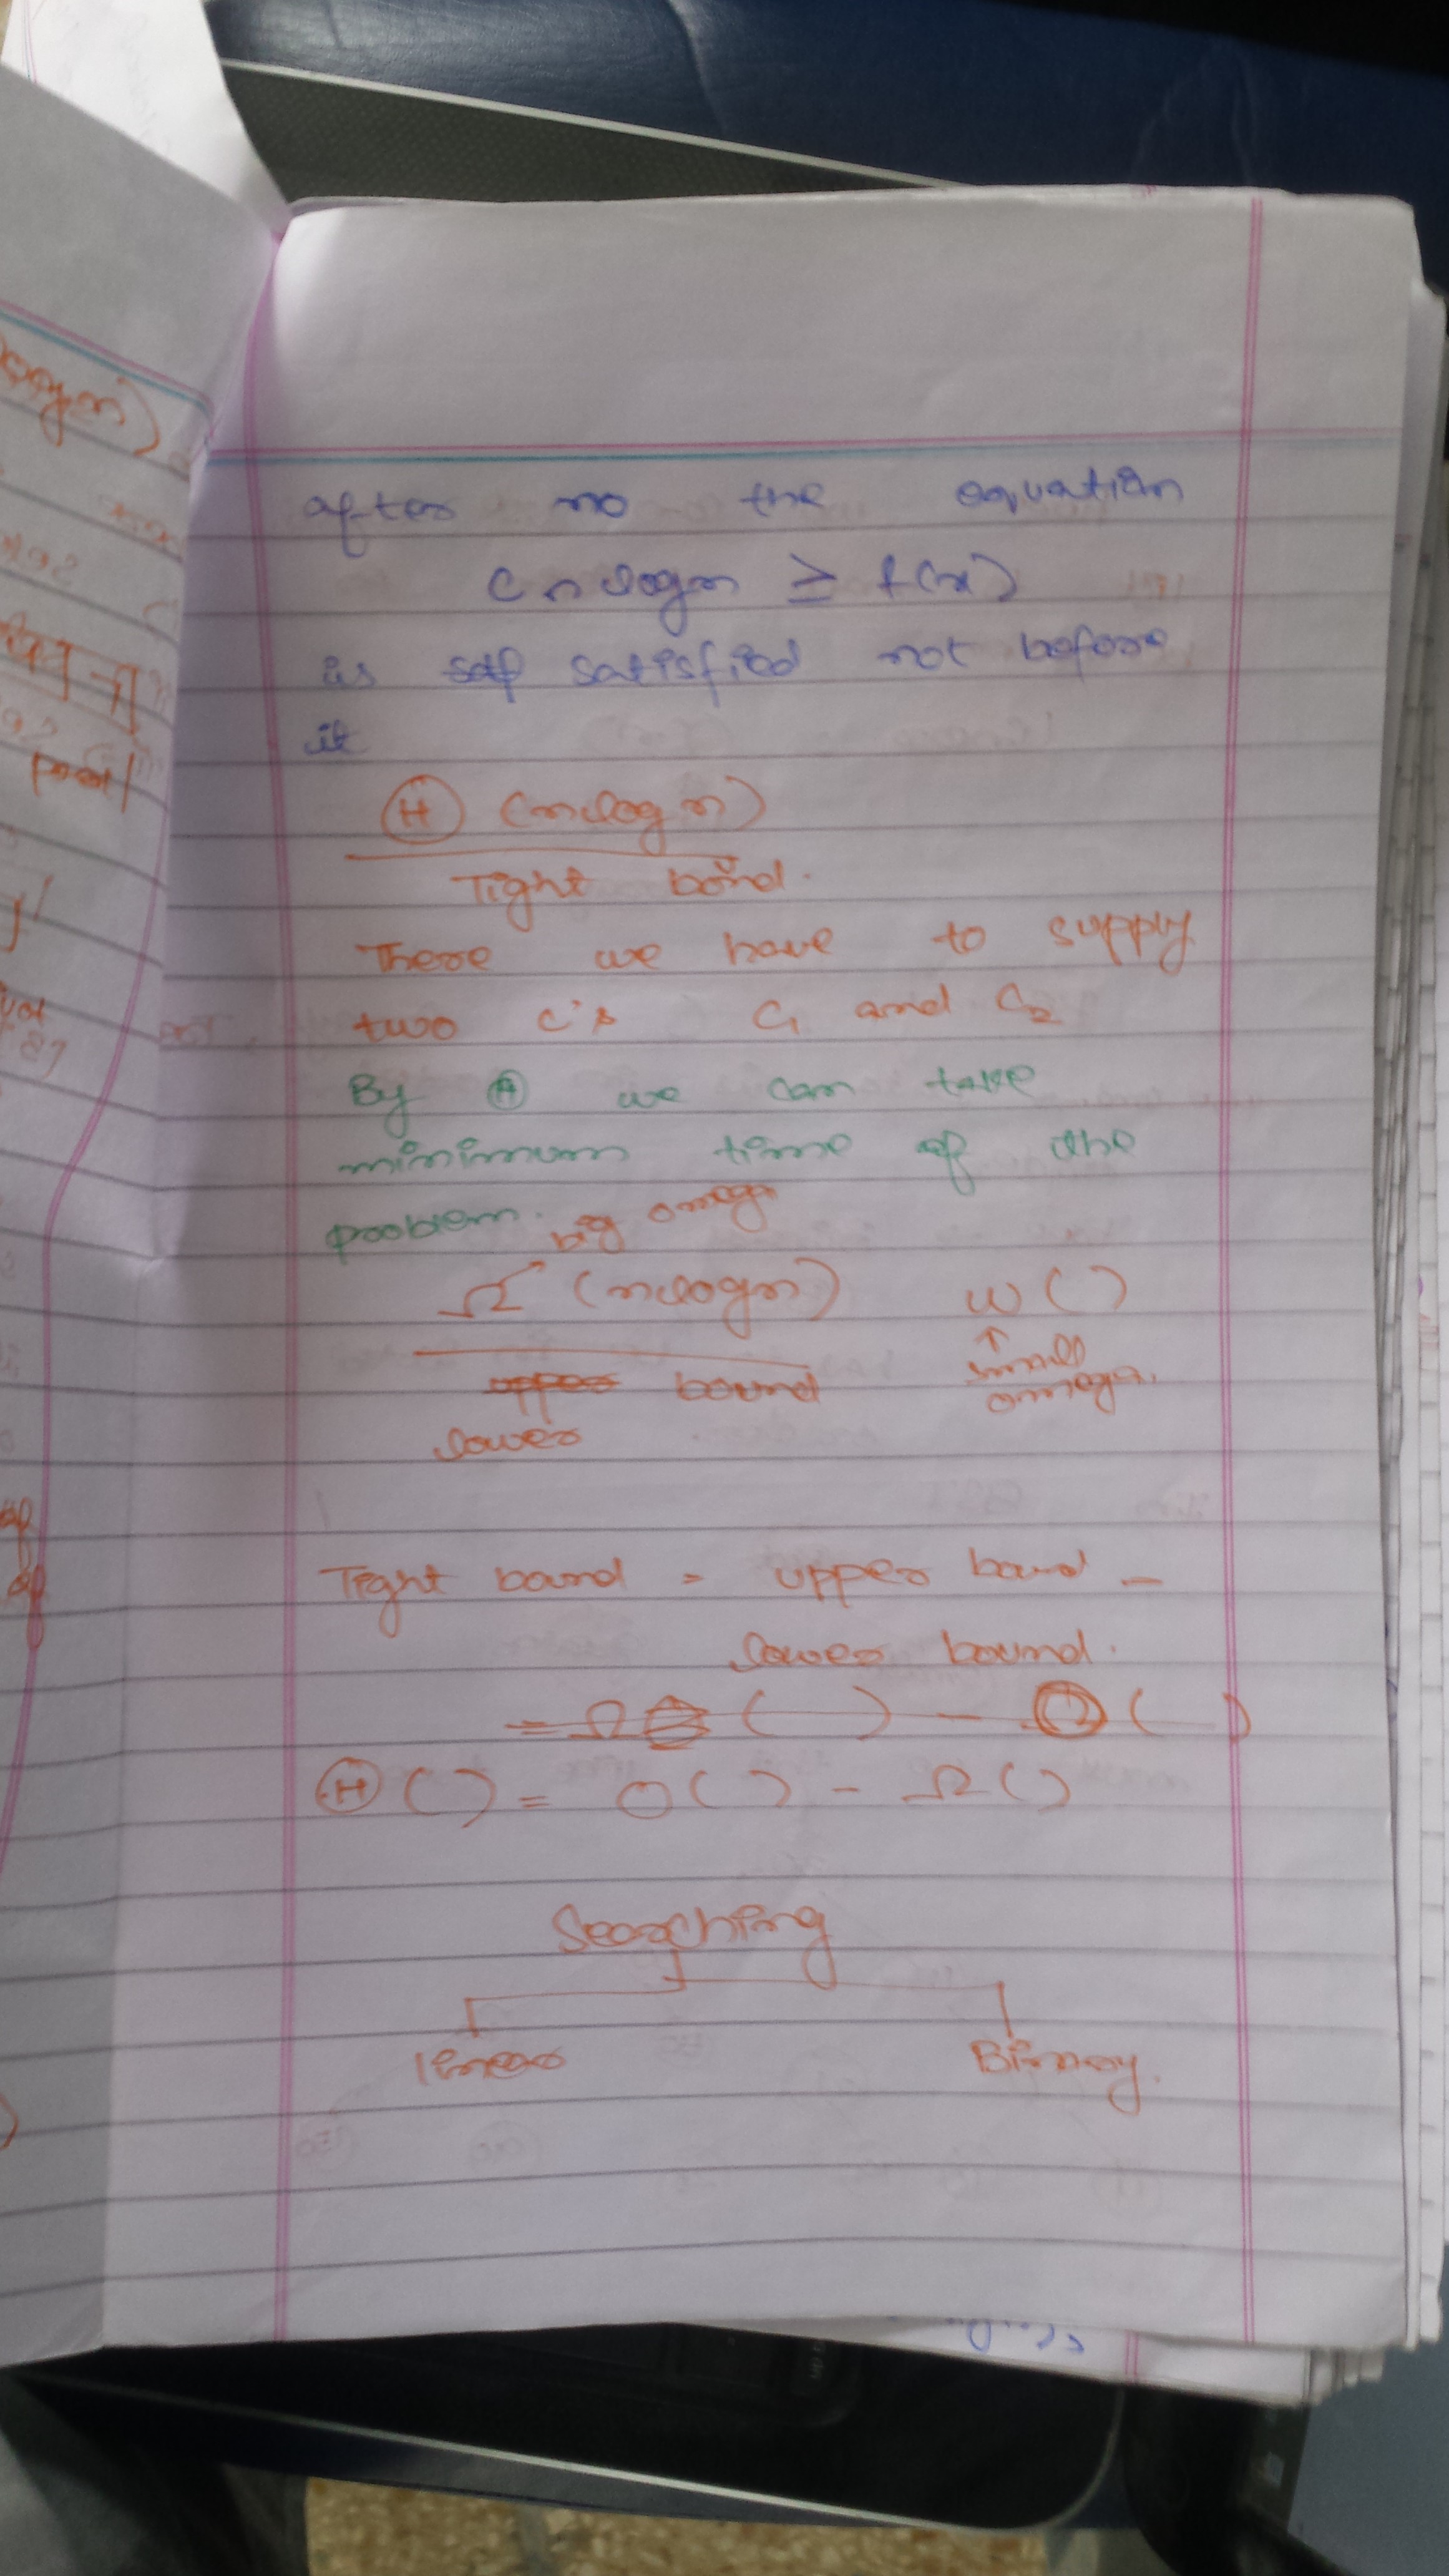 after no the equation
c n log n ≥ f(x)
is satisfied not before
it
Θ (n log n)
Tight bound.
There we have to supply
two c's C1 and C2
By Θ we can take
minimum time of the
problem.
big omega
Ω (n log n) ω ( )
↑
small
omega.
upper bound
lower
Tight bound = upper bound –
lower bound.
= Ω ( ) – Ω ( )
Θ ( ) = O ( ) – Ω ( )
Searching
linear Binary.